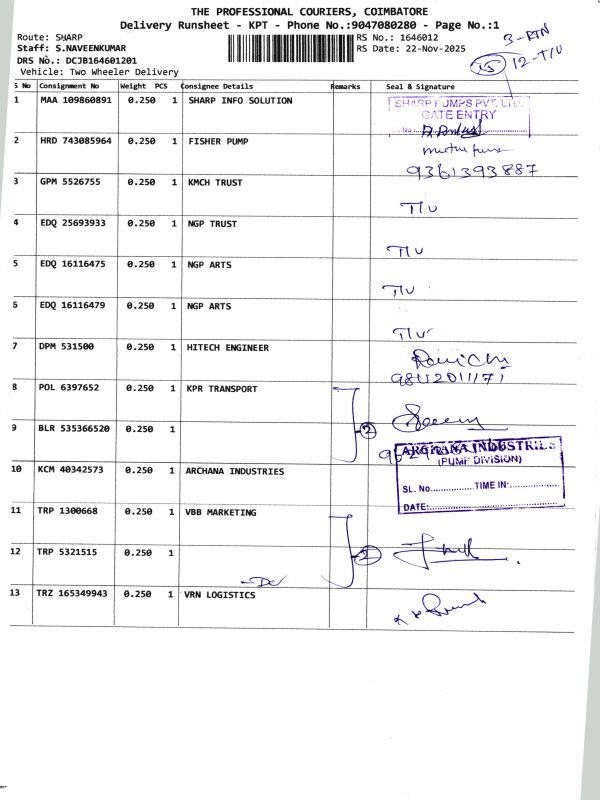 THE PROFESSIONAL COURIERS, COIMBATORE
Delivery Runsheet - KPT - Phone No.:9047080280 - Page No.:1
Route: SHARP
RS No.: 1646012
3-RTN
Staff: S.NAVEENKUMAR
RS Date: 22-Nov-2025
15 12-T/U
DRS No.: DCJB164601201
Vehicle: Two Wheeler Delivery
S No Consignment No Weight PCS Consignee Details Remarks Seal & Signature
1 MAA 109860891 0.250 1 SHARP INFO SOLUTION
SHARP PUMPS PVT. LTD.
GATE ENTRY
No
2 HRD 743085964 0.250 1 FISHER PUMP
9361393887
3 GPM 5526755 0.250 1 KMCH TRUST
T/U
4 EDQ 25693933 0.250 1 NGP TRUST
T/U
5 EDQ 16116475 0.250 1 NGP ARTS
T/U
6 EDQ 16116479 0.250 1 NGP ARTS
T/U
7 DPM 531500 0.250 1 HITECH ENGINEER
8 POL 6397652 0.250 1 KPR TRANSPORT
9 BLR 535366520 0.250 1
2
ARCHANA INDUSTRIES
(PUMP DIVISION)
10 KCM 40342573 0.250 1 ARCHANA INDUSTRIES
SL. No. TIME IN:
DATE:
11 TRP 1300668 0.250 1 VBB MARKETING
12 TRP 5321515 0.250 1
2
13 TRZ 165349943 0.250 1 VRN LOGISTICS